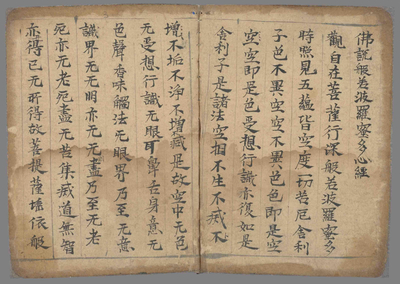 佛說般若波羅蜜多心經
觀自在菩薩行深般若波羅蜜多
時照見五蘊皆空度一切苦厄舍利
子色不異空空不異色色即是空
空空即是色受想行識亦復如是
舍利子是諸法空相不生不滅不
增不垢不淨不增減是故空中无色
无受想行識无眼耳鼻舌身意无
色聲香味觸法无眼界乃至无意
識界无无明亦无无盡乃至无老
死亦无老死盡无苦集滅道无智
亦得已无所得故菩提薩埵依般